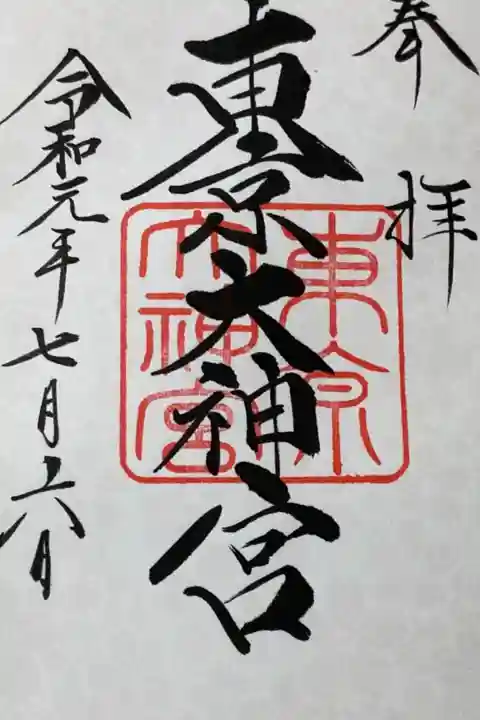 奉拝
東京大神宮
令和元年七月十六日
東京
大神宮